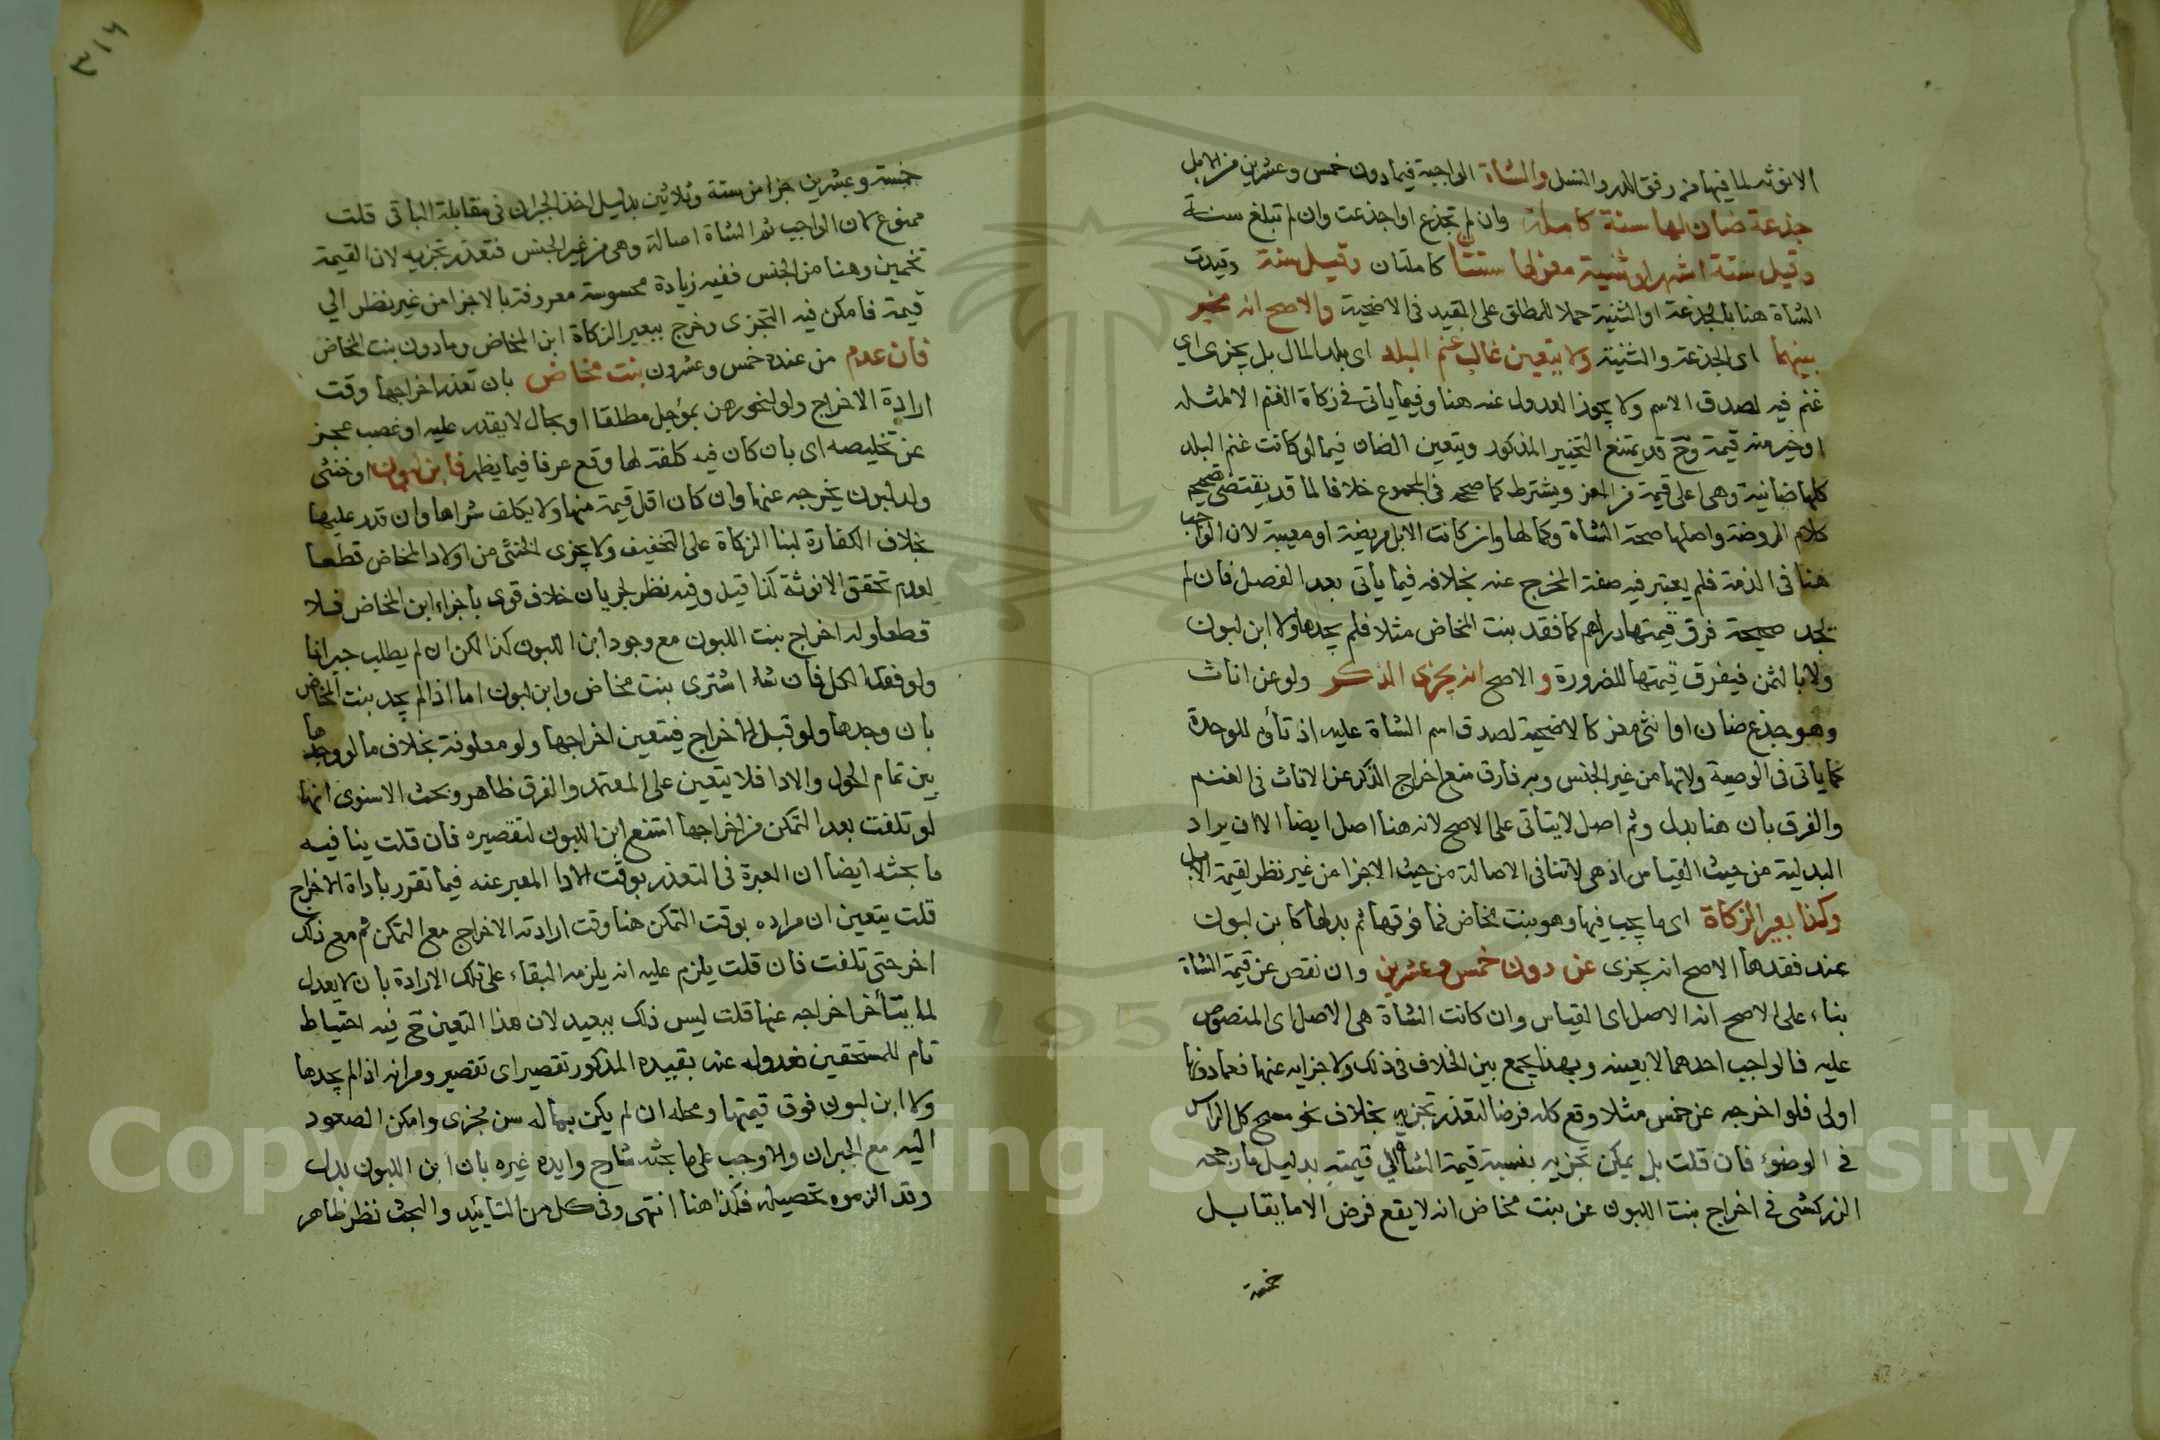 الانوثه لما فيها من رفق الدر والنسل والشاة الواجبة فيما دون خمس وعشرين من الابل
جذعة ضان لها سنة كاملة وان لم تجذع او اجذعت وان لم تبلغ سنة
وقيل ستة اشهر او ثنية معز لها سنتان كاملتان وقيل سنة وقيدت
الشاة هنا بالجذعة او الثنية حملا للمطلق على المقيد فى الاضحية والاصح انه مخير
بينهما اى الجذعة والثنية ولا يتعين غالب غنم البلد اى بلد المال بل يجزى اى
غنم فيه لصدق الاسم ولا يجوز العدول عنه هنا وفيما ياتى فى زكاة الغنم الا لمثله
او خير منه قيمة وح قد يمتنع التخيير المذكور ويتعين الضان فيما لو كانت غنم البلد
كلها ضانية وهى اعلى قيمة من المعز ويشترط كما صححه فى المجموع خلافا لما قد يقتضى تصحيحه
كلام الروضة واصلها صحة الشاة وكمالها وان كانت الابل مريضة او معيبة لان الواجب
هنا فى الذمة فلم يعتبر فيه صفة المخرج عنه بخلافه فيما ياتى بعد الفصل فان لم
تجد صحيحة فرق قيمتها دراهم كما فقد بنت المخاض مثلا فلم يجدها ولا ابن لبون
ولا بالثمن فيفرق قيمتها للضرورة والاصح انه يجزى الذكر ولو عن اناث
وهو جذع ضان او اثنى معز كالاضحية لصدق اسم الشاة عليه اذ تاؤه للوحدة
كما ياتى فى الوصية ولانها من غير الجنس وبه فارق منع اخراج الذكر عن الاناث فى الغنم
والفرق بان هنا بدل وثم اصل لا يتاتى على الاصح لانه هنا اصل ايضا الا ان يراد
البدلية من حيث القياس اذ هى لا تنافى الاصالة من حيث الاجزا من غير نظر لقيمة الابل
وكذا بعير الزكاة اى ما يجب فيها وهو بنت المخاض فما فوقها ثم بدلها كابن لبون
عند فقدها الاصح انه يجزى عن دون خمس وعشرين وان نقص عن قيمة الشاة
بناء على الاصح انه الاصل اى القياس وان كانت الشاة هى الاصل اى المنصوص
عليه فالواجب احدهما لا بعينه وبهذا يجمع بين الخلاف فى ذلك ولاجزايه عنها فما دونها
اولى فلو اخرجه عن خمس مثلا وقع كله فرضا لتعذر تجزيه بخلاف نحو مسح كل الراس
فى الوضوء فان قلت بل يمكن تجزيه بنسبة قيمة الشاة الى قيمته بدليل ما رجحه
الزركشى فى اخراج بنت اللبون عن بنت مخاض انه لا يقع فرض الا ما يقابل
خمسة
٣١٤
خمسة وعشرين جزا من ستة وثلاثين بدليل اخذ الجبران فى مقابلة الباقى قلت
ممنوع لان الواجب ثم الشاة اصالة وهى من غير الجنس فتعذر تجزيه لان القيمة
تخمين وهنا من الجنس ففيه زيادة محسوسة معروفة بالاجزا من غير نظر الى
قيمة فامكن فيه التجزى وخرج ببعير الزكاة ابن المخاض وما دون بنت المخاض
فان عدم من عنده خمس وعشرون بنت مخاض بان تعذر اخراجها وقت
ارادة الاخراج ولو لنحو رهن بمؤجل مطلقا او بحال لا يقدر عليه او غصب عجز
عن تخليصه اى بان كان فيه كلفة لها وقع عرفا فيما يظهر فابن لبون او خنثى
ولد لبون يخرجه عنها وان كان اقل قيمة منها ولا يكلف شراها وان قدر عليها
بخلاف الكفارة لبنا الزكاة على التخفيف ولا يجزى الخنثى من اولاد المخاض قطعا
لعدم تحقق الانوثة كذا قيل وفيه نظر لجريان خلاف قوى باجزاء ابن المخاض فلا
قطعا وله اخراج بنت اللبون مع وجود ابن اللبون كذا لكن ان لم يطلب جبرانا
ولو فقد الكل فان شاء اشترى بنت مخاض او ابن لبون اما اذا لم يجد بنت المخاض
بان وجدها ولو قبل الاخراج فيتعين اخراجها ولو معلوفة بخلاف ما لو وجدها
بين تمام الحول والادا فلا يتعين على المعتمد والفرق ظاهر وبحث الاسنوى انها
لو تلفت بعد التمكن من اخراجها امتنع ابن اللبون لتقصيره فان قلت ينافيه
ما بحثه ايضا ان العبرة فى التعذر بوقت الادا المعبر عنه فيما تقرر باداة الاخراج
قلت يتعين ان مراده بوقت التمكن هنا وقت ارادته الاخراج مع التمكن ثم مع ذلك
اخر حتى تلفت فان قلت يلزم عليه انه يلزمه البقاء على تلك الارادة بان لا يعدل
لما يتأخر اخراجه عنها قلت ليس ذلك ببعيد لان هذا التعين ح فيه احتياط
تام للمستحقين فعدوله عنه بقيده المذكور تقصير اى تقصير ومر انه اذا لم يجدها
ولا ابن لبون فوق قيمتها ومحله ان لم يكن بماله سن مجزى وامكن الصعود
اليه مع الجبران والاوجب على ما بحثه شارح وايده غيره بان ابن اللبون بدل
وقد الزموه تحصيله فكذا هنا انتهى وفى كل من التاييد والبحث نظر ظاهر